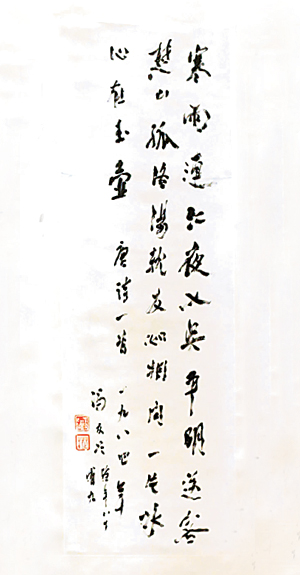 寒雨連江夜入吳平明送客
楚山孤洛陽親友如相問一片冰
心在玉壺 唐詩一首 一九八四年
馮友蘭 時年八十
有九